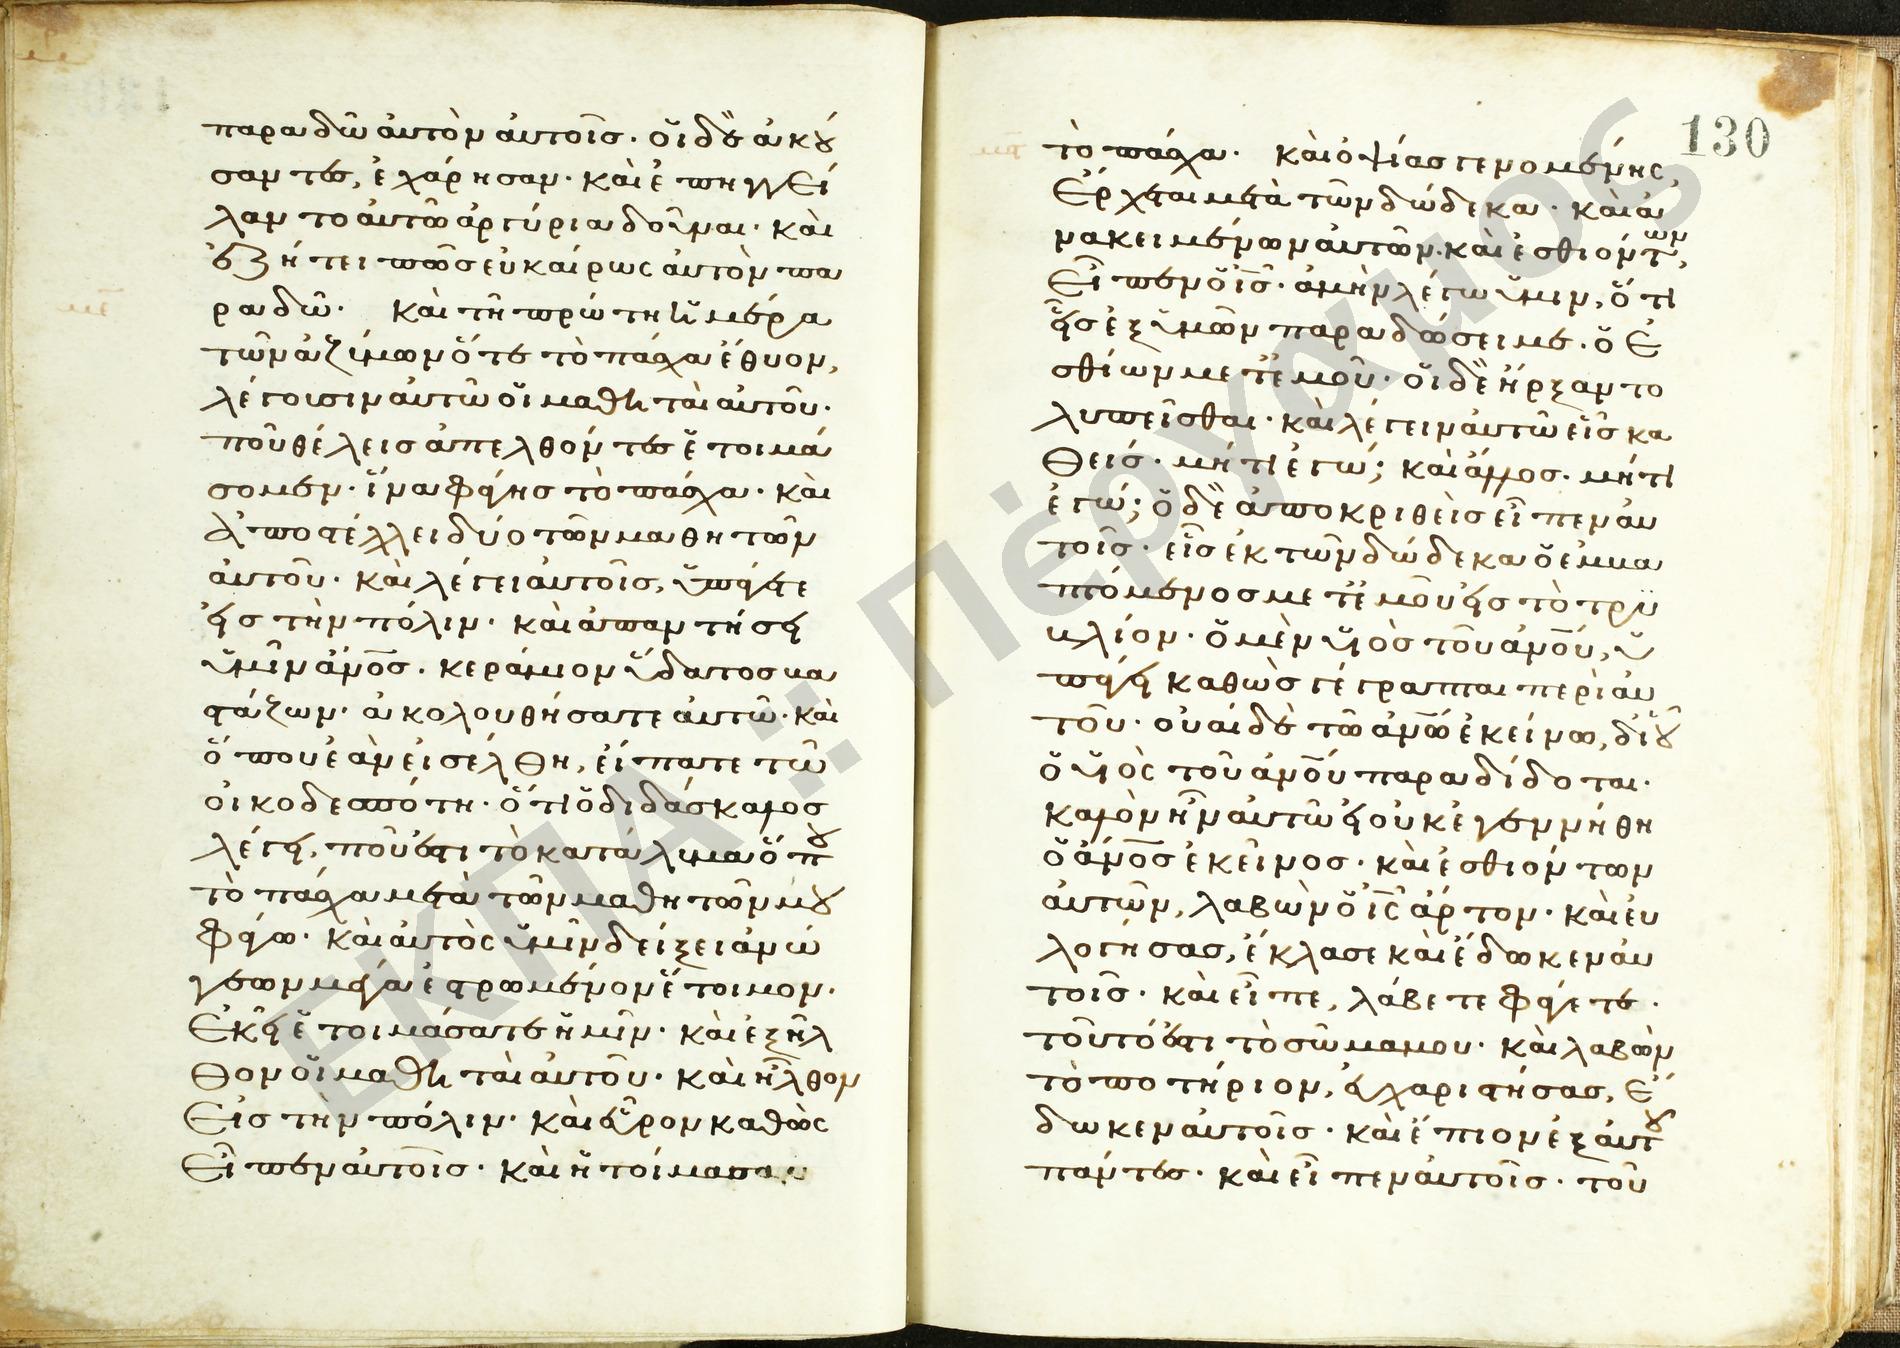 παραδῶ ἀυτὸν ἀυτοῖσ· ὅι δὲ ἀκού
σαντες, ἐχάρησαν· κὰι ἐπηγγεί
λαντο ἀυτῶ ἀργύρια δοῦναι· κὰι
ἐζήτει πῶσ ἐυκαίρως ἀυτὸν πα
ραδῶ· κὰι τῆ πρώτη ἡμέρα
τῶν ἀζύμων ὅτε τὸ πάσχα ἔθυον,
λέγουσιν ἀυτῶ ὅι μαθηταὶ ἀυτοῦ·
ποῦ θέλεισ ἀπελθόντεσ ἑτοιμά
σομεν· ἵνα φάγησ τὸ πάσχα· κὰι
ἀποστέλλει δύο τῶν μαθητῶν
ἀυτοῦ· κὰι λέγει ἀυτοῖσ, ὑπάγετε
εἰσ τὴν πόλιν· κὰι ἀπαντήσει
ὑμῖν ἀν̅ο̅σ̅. κεράμιον ὕδατοσ βα
στάζων· ἀκολουθήσατε ἀυτῶ· κὰι
ὅπου ἐὰν ἐισέλθη, ἐίπατε τῶ
ὀικοδεσπότη· ὅτι ὁ διδάσκαλοσ
λέγει, ποῦ ἐστι τὸ κατάλυμα ὅπου
τὸ πάσχα μετὰ τῶν μαθητῶν μου
φάγω· κὰι ἀυτὸς ὑμῖν δείξει ἀνώ
γεων μέγα ἐστρωμένον ἕτοιμον.
Ἐκεῖ ἑτοιμάσατε ἡμῖν· κὰι ἐξῆλ
θον ὅι μαθηταὶ ἀυτοῦ· κὰι ῆλθον
Ἐισ τὴν πόλιν· κὰι εὗρον καθὼς
Εἶπεν ἀυτοῖσ· κὰι ἡτοίμασαν
130
τὸ πάσχα· κὰι ὀψίασ γενομένης,
Ἔρχεται μετὰ τῶν δώδεκα· κὰι ἀ
νακειμένων ἀυτῶν· κὰι ἐσθιόντων,
Εἶπεν ὁ ἰ̅σ̅· ἀμὴν λέγω ὑμιν, ὅτι
εἷσ ἐξ ὑμῶν παραδώσει με· ὁ ἐ
σθίων μετ ἐμοῦ· ὅι δὲ ἤρξαντο
λυπεῖσθαι· κὰι λέγειν ἀυτῶ εἷσ κα
θείσ· μήτι ἐγώ; κὰι ἄλλοσ· μήτι
ἐγώ; ὁ δὲ ἀποκριθεὶσ εἶπεν ἀυ
τοῖσ· εἷσ ἐκ τῶν δώδεκα ὁ ἐμβα
πτόμενοσ μετ ἐμοῦ εἰσ τὸ τρυ
βλίον· ὁ μὲν υἱὸσ τοῦ ἀν̅ο̅ύ̅, ὑ
πάγει καθὼσ γέγραπται περὶ ἀυ
τοῦ· ουάι δὲ τῶ ἀν̅ω̅ ἐκείνω, δι οὗ
ὁ υἱὸς τοῦ ἀν̅ο̅υ̅ παραδίδοται·
καλὸν ῆν ἀυτῶ εἰ οὐκ ἐγεννήθη
ὁ ἀν̅ο̅σ̅ ἐκεῖνοσ· κὰι ἐσθιόντων
ἀυτῶν, λαβὼν ὁ ἰ̅σ̅ ἄρτον· κὰι ἐυ
λογήσασ, ἔκλασε κὰι ἔδωκεν ἀυ
τοῖσ· κὰι εἶπε, λάβετε φάγετε.
τοῦτό ἐστι τὸ σῶμα μου· κὰι λαβὼν
τὸ ποτήριον, εὐχαριστήσασ, ἔ
δωκεν ἀυτοῖσ· κὰι ἔπιον ἐξ ἀυτοῦ
πάντεσ· κὰι εἶπεν ἀυτοῖσ· τοῦ
ΕΚΠΑ :: Πέργαμος